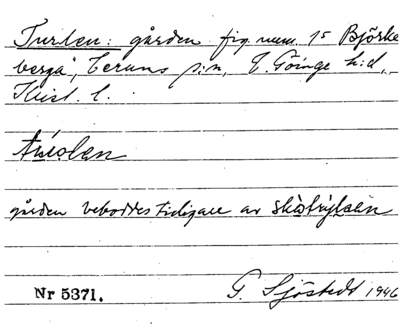 Turlen: gården fig. num. 15 Björke
berga, Verums s:n, V. Göinge h:d,
Krist. l.
gården beboddes tidigare av
Nr 5371. G. Sjöstedt 1946